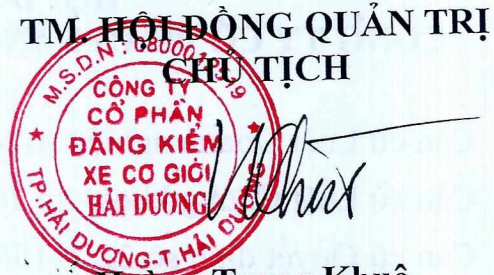 TM. HỘI ĐỒNG QUẢN TRỊ
CHỦ TỊCH
CÔNG TY
CỔ PHẦN
ĐĂNG KIỂM
XE CƠ GIỚI
HẢI DƯƠNG
TP.HẢI DƯƠNG-T.HẢI DƯƠNG
Khuê